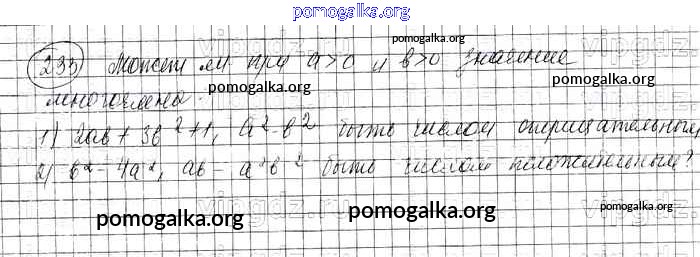 pomogalka.org
233) Может ли при a>0 и b>0 значение
pomogalka.org
многочлена.
pomogalka.org
1) 2ab + 3b²+1, a²-b² быть числом отрицательным,
2) b²-4a², ab - a²b² быть числом положительным?
pomogalka.org
pomogalka.org
pomogalka.org
pomogalka.org